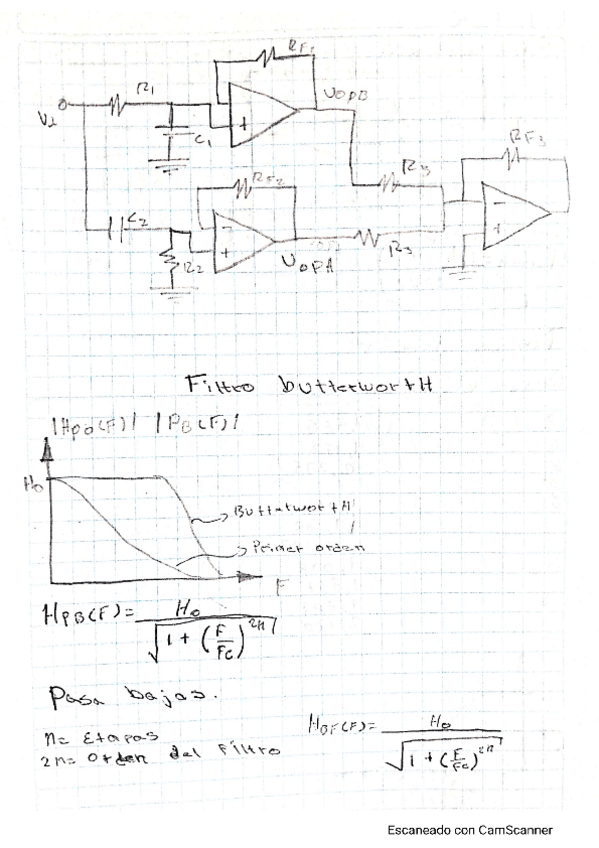 RF1
R1
VOPB
Vi
C1
RF3
R3
RF2
C2
R3
R2
VOPA
Filtro butterwortH
|HPB(F)| |PB(F)|
Ho
ButterwortH
Primer orden
F
HPB(F)= Ho / √(1 + (F/Fc)^2n)
Pasa bajas.
n= Etapas
2n= Orden del Filtro
Ho / √(1 + (F/Fc)^2n)
Escaneado con CamScanner